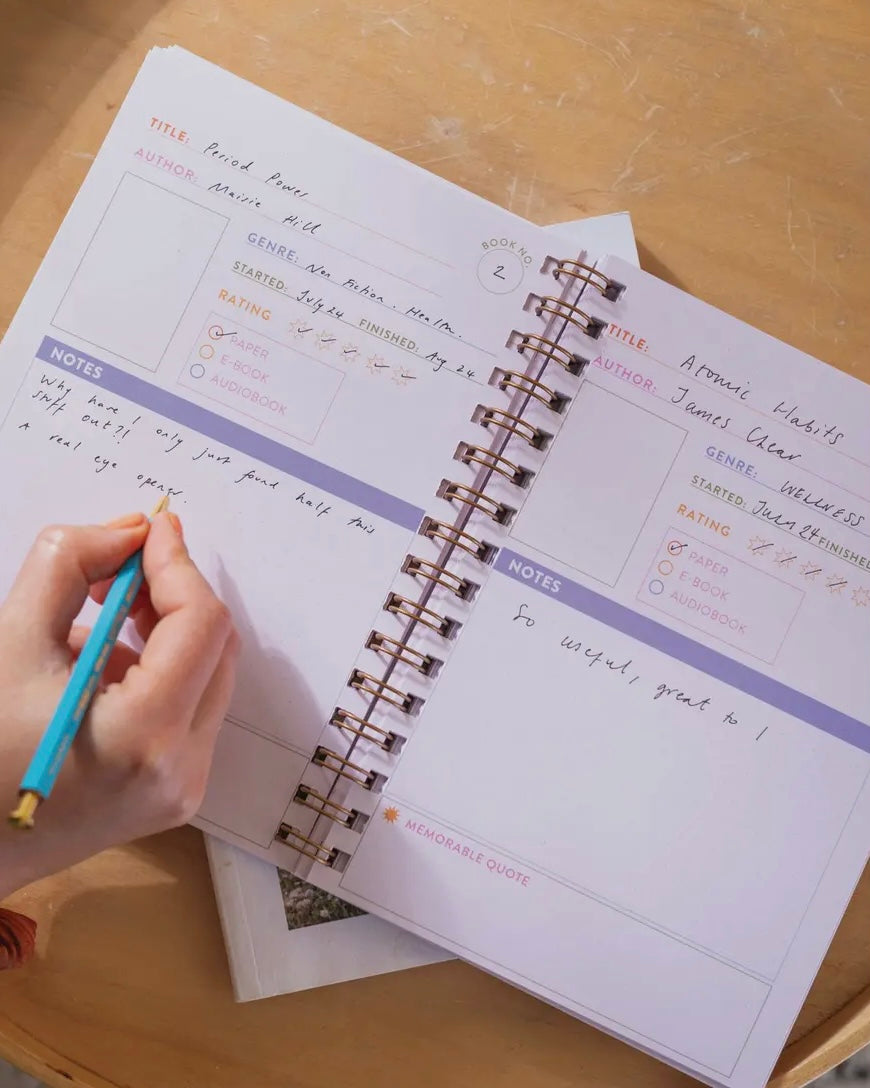 TITLE: Period Power
AUTHOR: Maisie Hill
BOOK NO.
2
GENRE: Non Fiction. Health.
STARTED: July 24 FINISHED: Aug 24
RATING
PAPER
E-BOOK
AUDIOBOOK
NOTES
Why have I only just found half this
stuff out?!
A real eye opener.
TITLE: Atomic Habits
AUTHOR: James Clear
GENRE: WELLNESS
STARTED: JULY 24 FINISHED
RATING
PAPER
E-BOOK
AUDIOBOOK
NOTES
So useful, great to I
MEMORABLE QUOTE